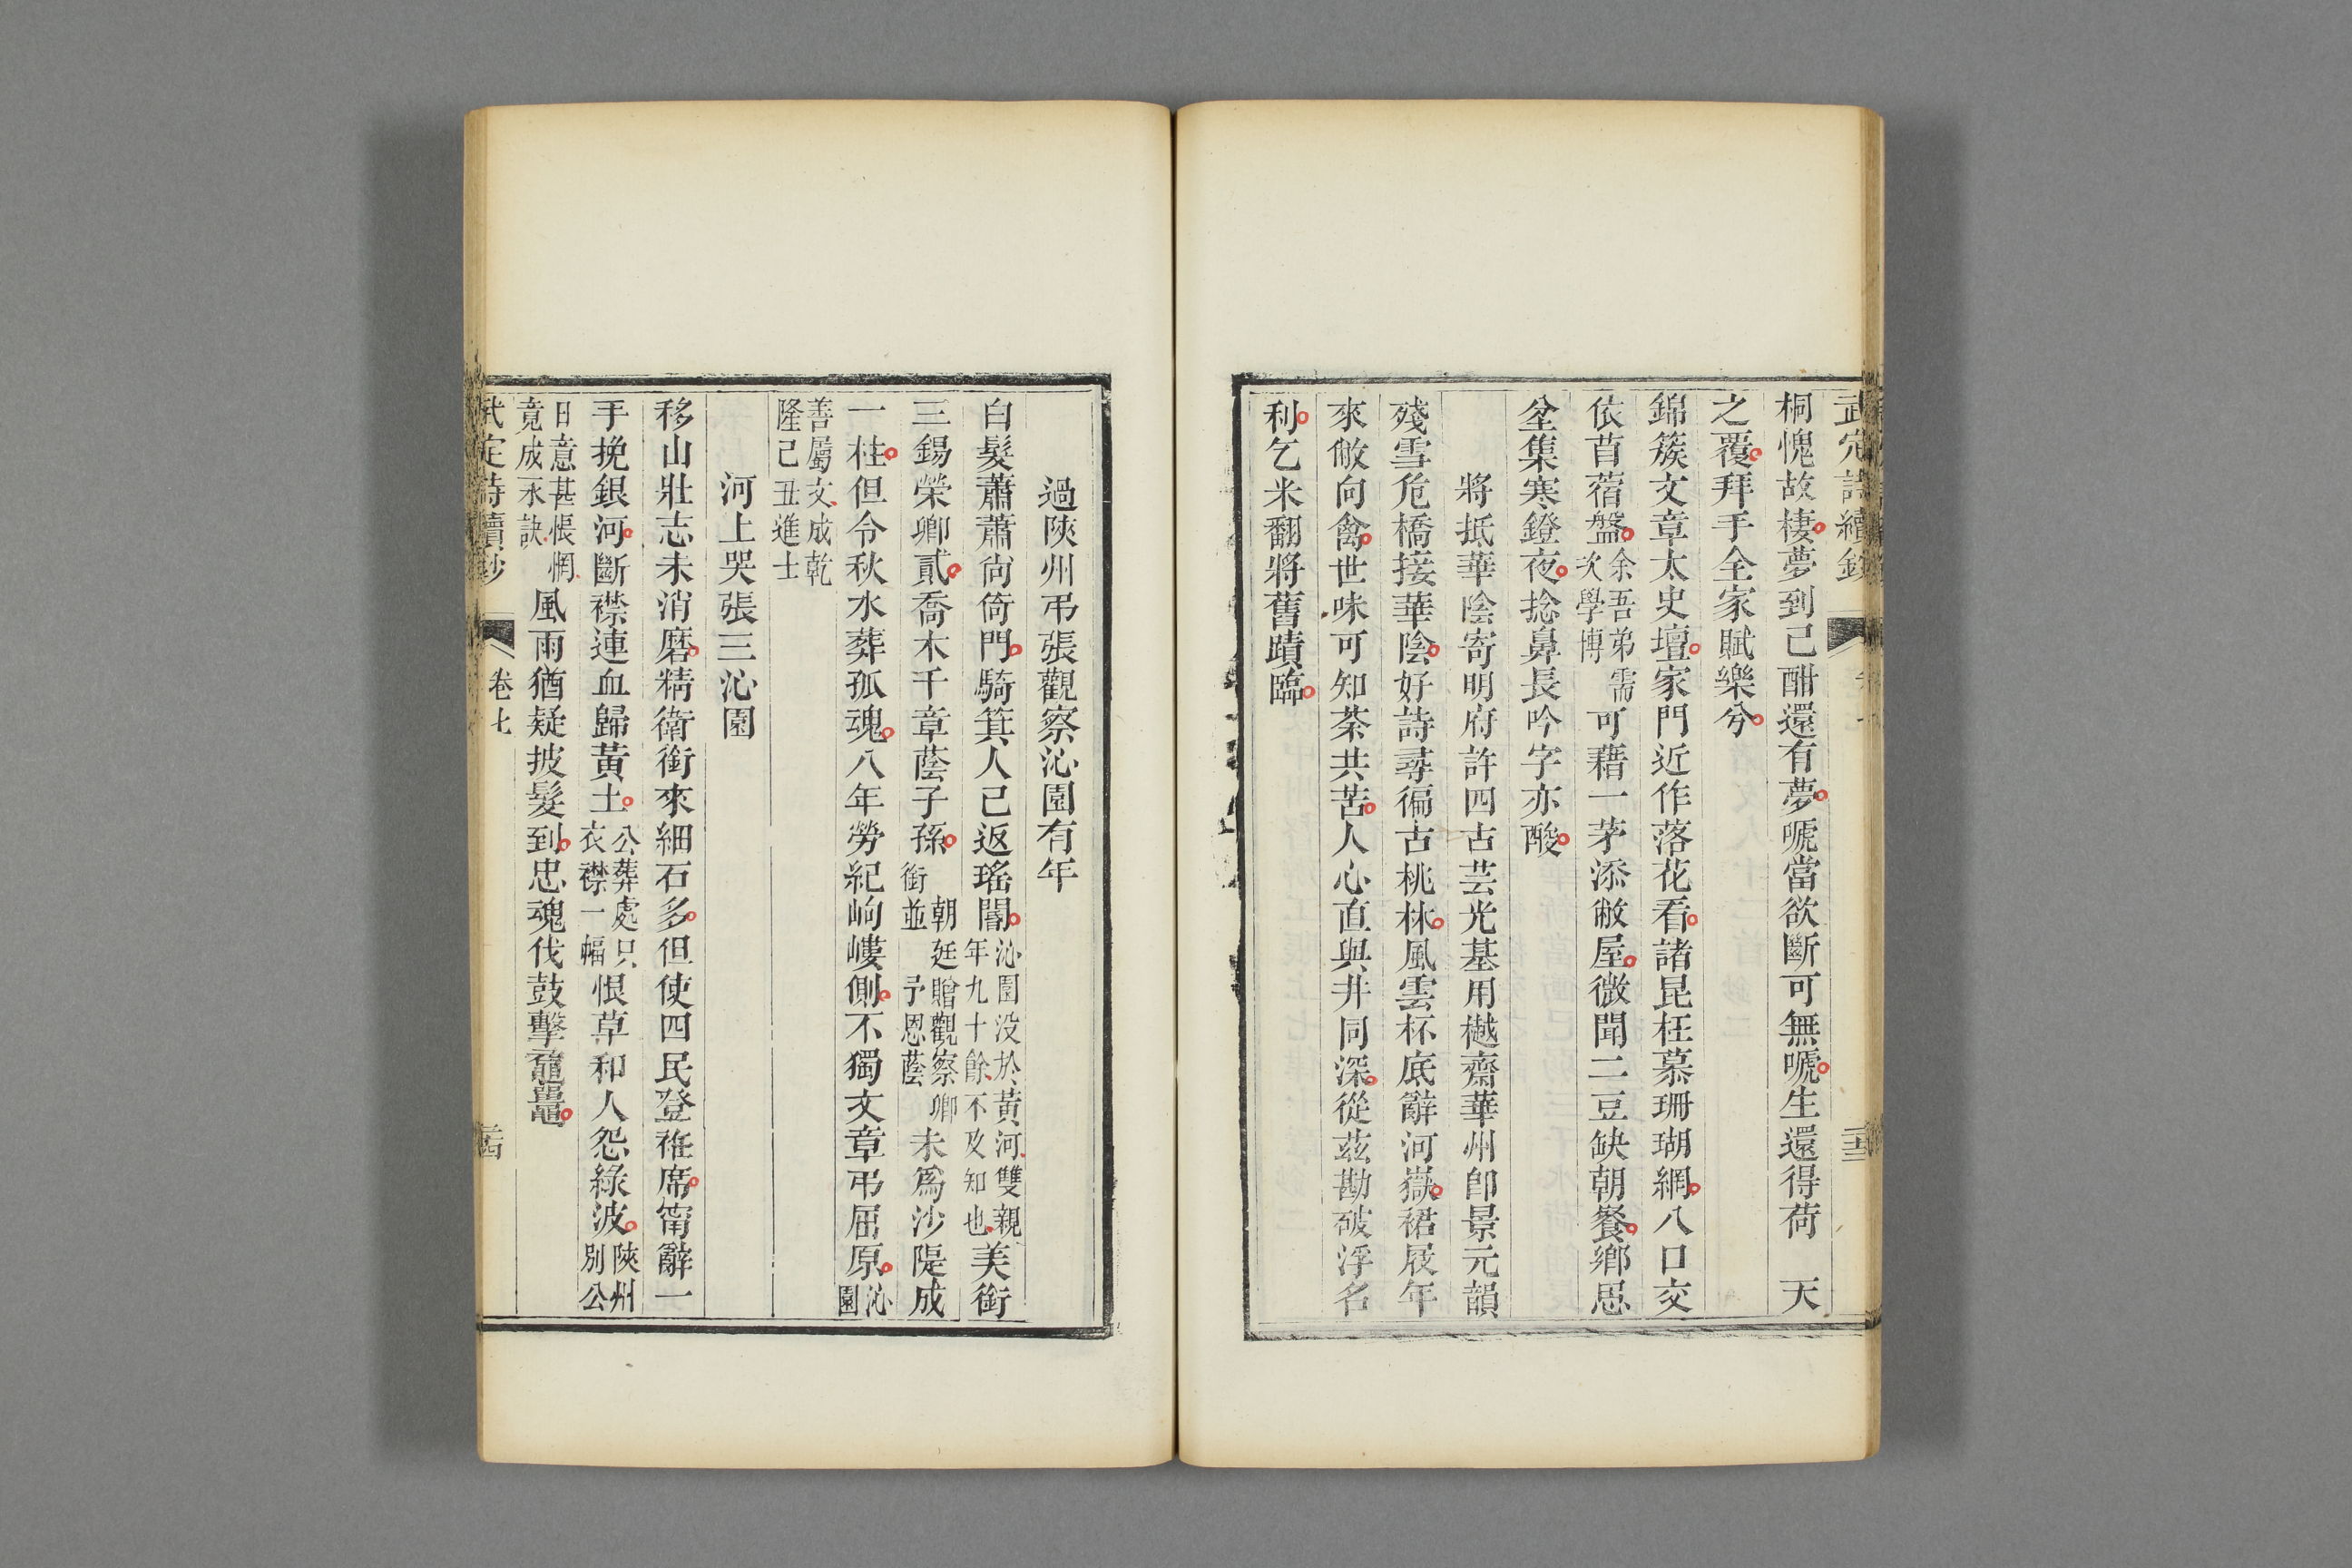 武定詩續鈔
桐愧故棲夢到已酣還有夢嘑當欲斷可無嘑生還得荷　天
之覆拜手全家賦樂兮
錦簇文章太史壇家門近作落花看諸昆枉慕珊瑚網八口交
依苜蓿盤余吾弟需次學博可藉一茅添敝屋微聞二豆缺朝餐鄉思
坌集寒鐙夜捻鼻長吟字亦酸
將抵華陰寄明府許四古芸光基用樾齋華州卽景元韻
殘雪危橋接華陰好詩尋徧古桃林風雲杯底辭河嶽裙屐年
來倣向禽世味可知荼共苦人心直與井同深從茲勘破浮名
利乞米翻將舊蹟臨
過陝州弔張觀察沁園有年
白髮蕭蕭尙倚門騎箕人已返瑤閽沁園没於黃河雙親年九十餘不及知也美銜
三錫榮卿貳喬木千章蔭子孫朝廷贈觀察卿銜並予恩蔭未爲沙隄成
一柱但令秋水葬孤魂八年勞紀岣嶁側不獨文章弔屈原沁園
善屬文成乾隆己丑進士
河上哭張三沁園
移山壯志未消磨精衛銜來細石多但使四民登袵席甯辭一
手挽銀河斷襟連血歸黃土公葬處只衣襟一幅恨草和人怨綠波陝州別公
日意甚悵惘竟成永訣風雨猶疑披髮到忠魂伐鼓擊黿鼉
武定詩續鈔
卷七
二十四